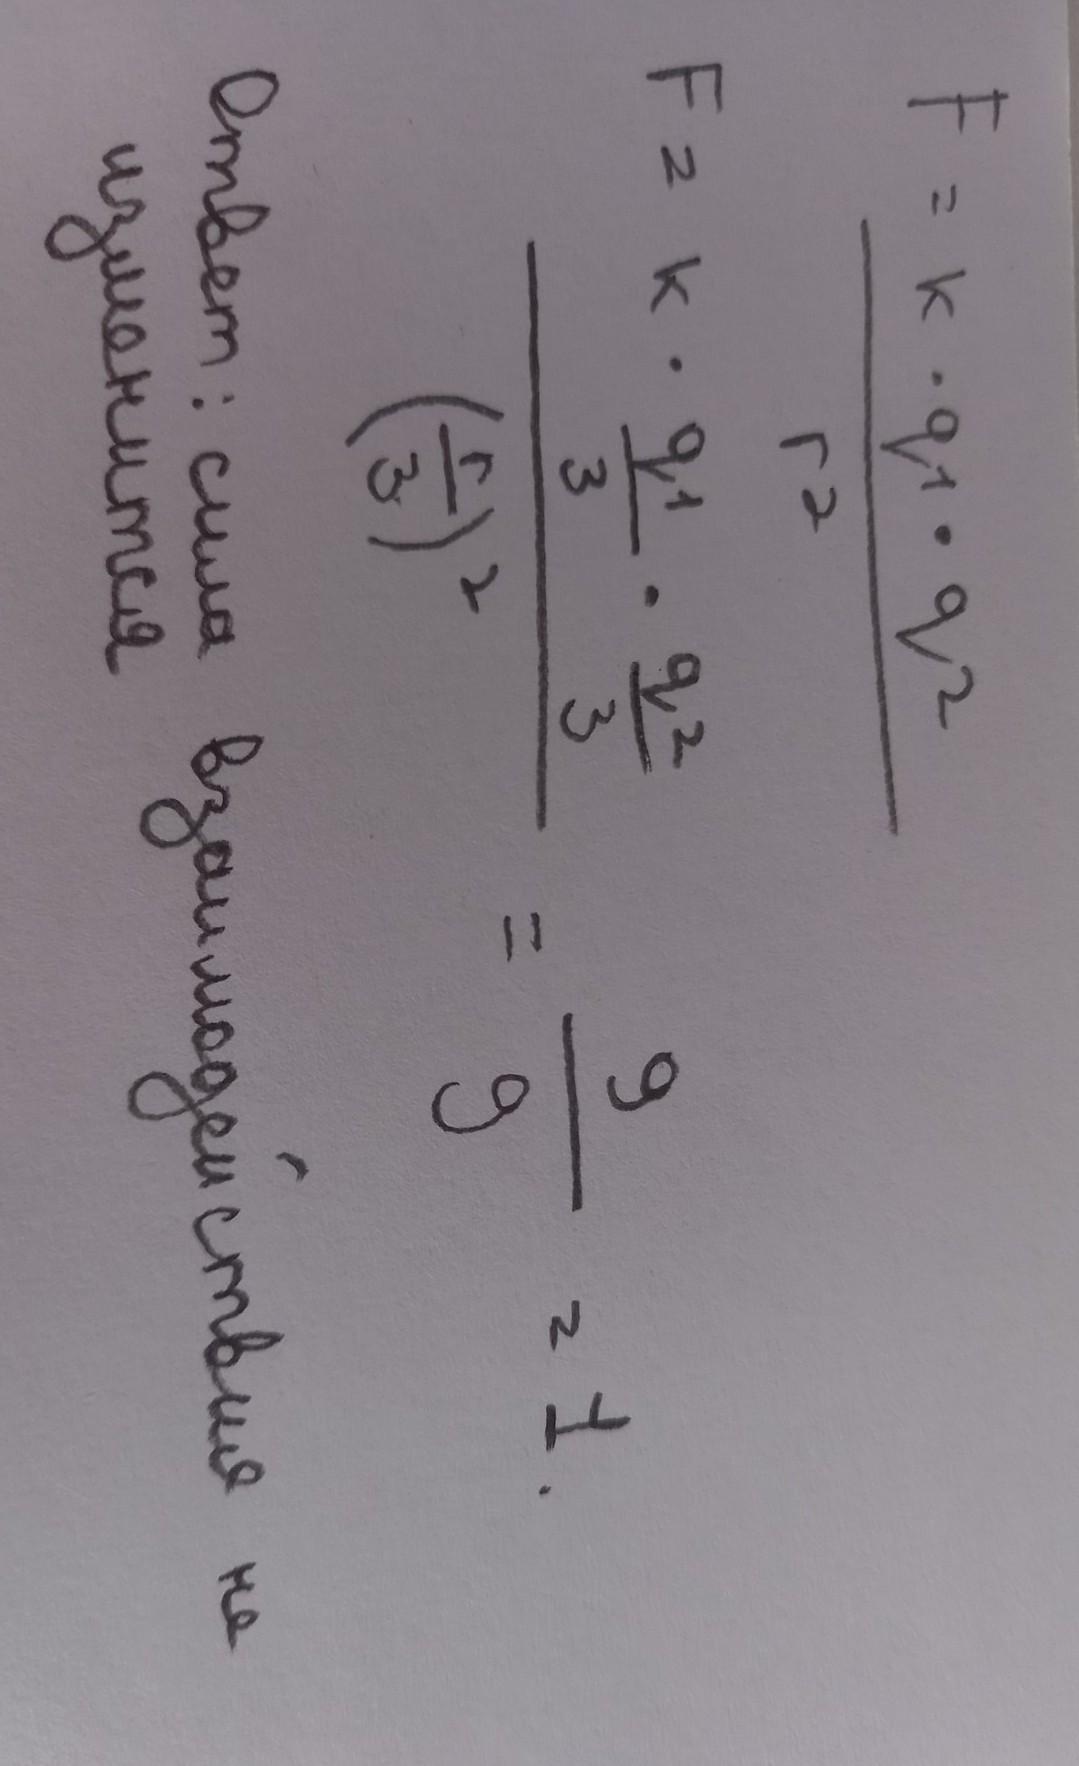 F = k · q1 · q2
r2
F = k · q1/3 · q2/3
(r/3)2 = 9/9 = 1.
Ответ: сила взаимодействия не
изменится